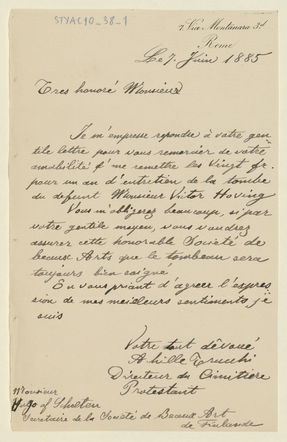 STYAC10_38_1
7. Via Montanara 3.d
Rome
Le 7 Juin 1885
Tres honoré Monsieur
Je m'empresse repondre à vôtre gen
tile lettre pour vous remercier de vôtre
amabilité d'me remettre les Vingt fr.
pour un an d'entretien de la tombe
du defunt Monsieur Victor Hoving
Vous m'obligeres beaucoup, si par
votre gentile moyen, vous vaudrez
assurer cette honorable Societé de
beaux Arts que le tombeau sera
toujours bien soigné
En vous priant d'agreer l'expres
sion de mes meilleurs sentiments, je
suis
Votre tout dévoué
Achille Trucchi
Directeur du Cimitière
Protestant
Monsieur
Hugo
Secretaire de la Societé de Beaux Art
de Finlande